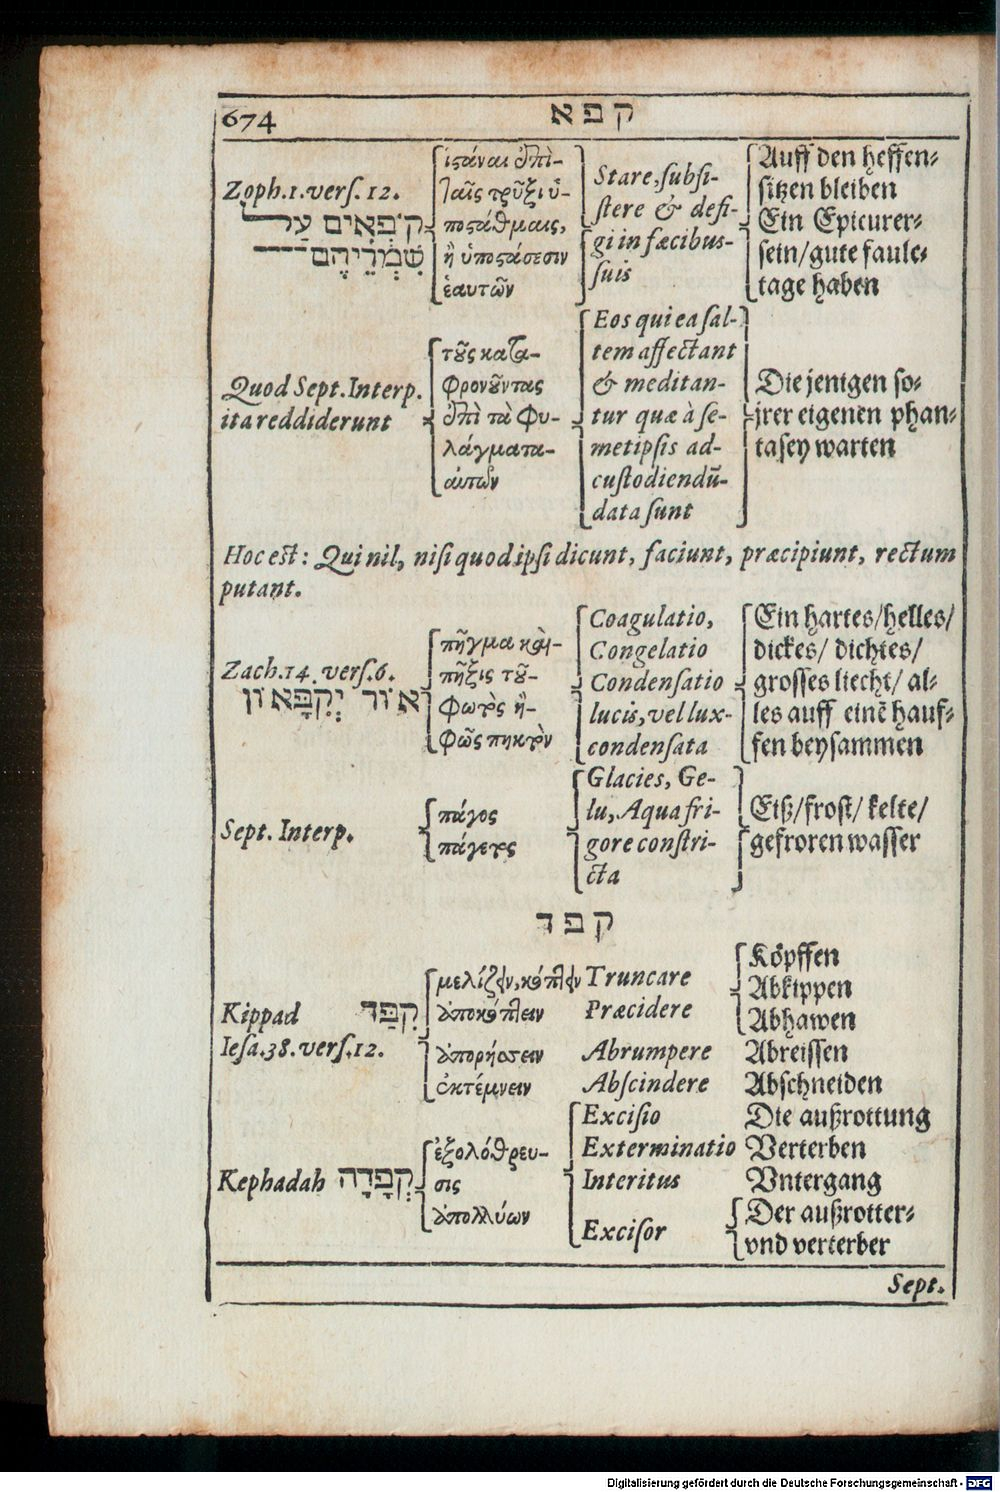 674 קפא
Zoph.1.vers.12.
קֹפְאִים עַל
שִׁמְרֵיהֶם
ἱϛάναι ἐπὶ-
ταῖς τρῦξι ὑ-
ποϛάθμαις,
ἢ ὑποϛάσεσιν
ἑαυτῶν
Stare, subsi-
stere & defi-
gi in fæcibus-
suis
Auff den heffen-
sitzen bleiben
Ein Epicurer-
sein/gute faule-
tage haben
Quod Sept. Interp.
ita reddiderunt
τοὺς κατα-
φρονοῦντας
ἐπὶ τὰ φυ-
λάγματα-
αὐτῶν
Eos qui ea sal-
tem affectant
& meditan-
tur quæ à se-
metipsis ad-
custodiendū-
data sunt
Die jenigen so-
jrer eigenen phan-
tasey warten
Hoc est: Qui nil, nisi quod ipsi dicunt, faciunt, præcipiunt, rectum
putant.
Zach.14. vers.6.
אוֹר יְקִפָּאוֹן
πῆγμα καὶ-
πῆξις τοῦ-
φωτὸς ἢ-
φῶς πηκτὸν
Coagulatio,
Congelatio
Condensatio
lucis, vel lux-
condensata
Ein hartes/helles/
dickes/ dichtes/
grosses liecht/ al-
les auff einē hauf-
fen beysammen
Sept. Interp.
πάγος
πάγετος
Glacies, Ge-
lu, Aqua fri-
gore constri-
cta
Eiß/frost/ kelte/
gefroren wasser
קפד
Kippad קִפַּד
Iesa.38. vers.12.
μελίζειν, κόπτειν
ἀποκόπτειν
ἀποῤῥήσσειν
ἐκτέμνειν
Truncare
Præcidere
Abrumpere
Abscindere
Köpffen
Abkippen
Abhawen
Abreissen
Abschneiden
Kephadah קְפָדָה
ἐξολόθρευ-
σις
ἀπολλύων
Excisio
Exterminatio
Interitus
Excisor
Die außrottung
Verterben
Vntergang
Der außrotter-
vnd verterber
Sept.
Digitalisierung gefördert durch die Deutsche Forschungsgemeinschaft - DFG